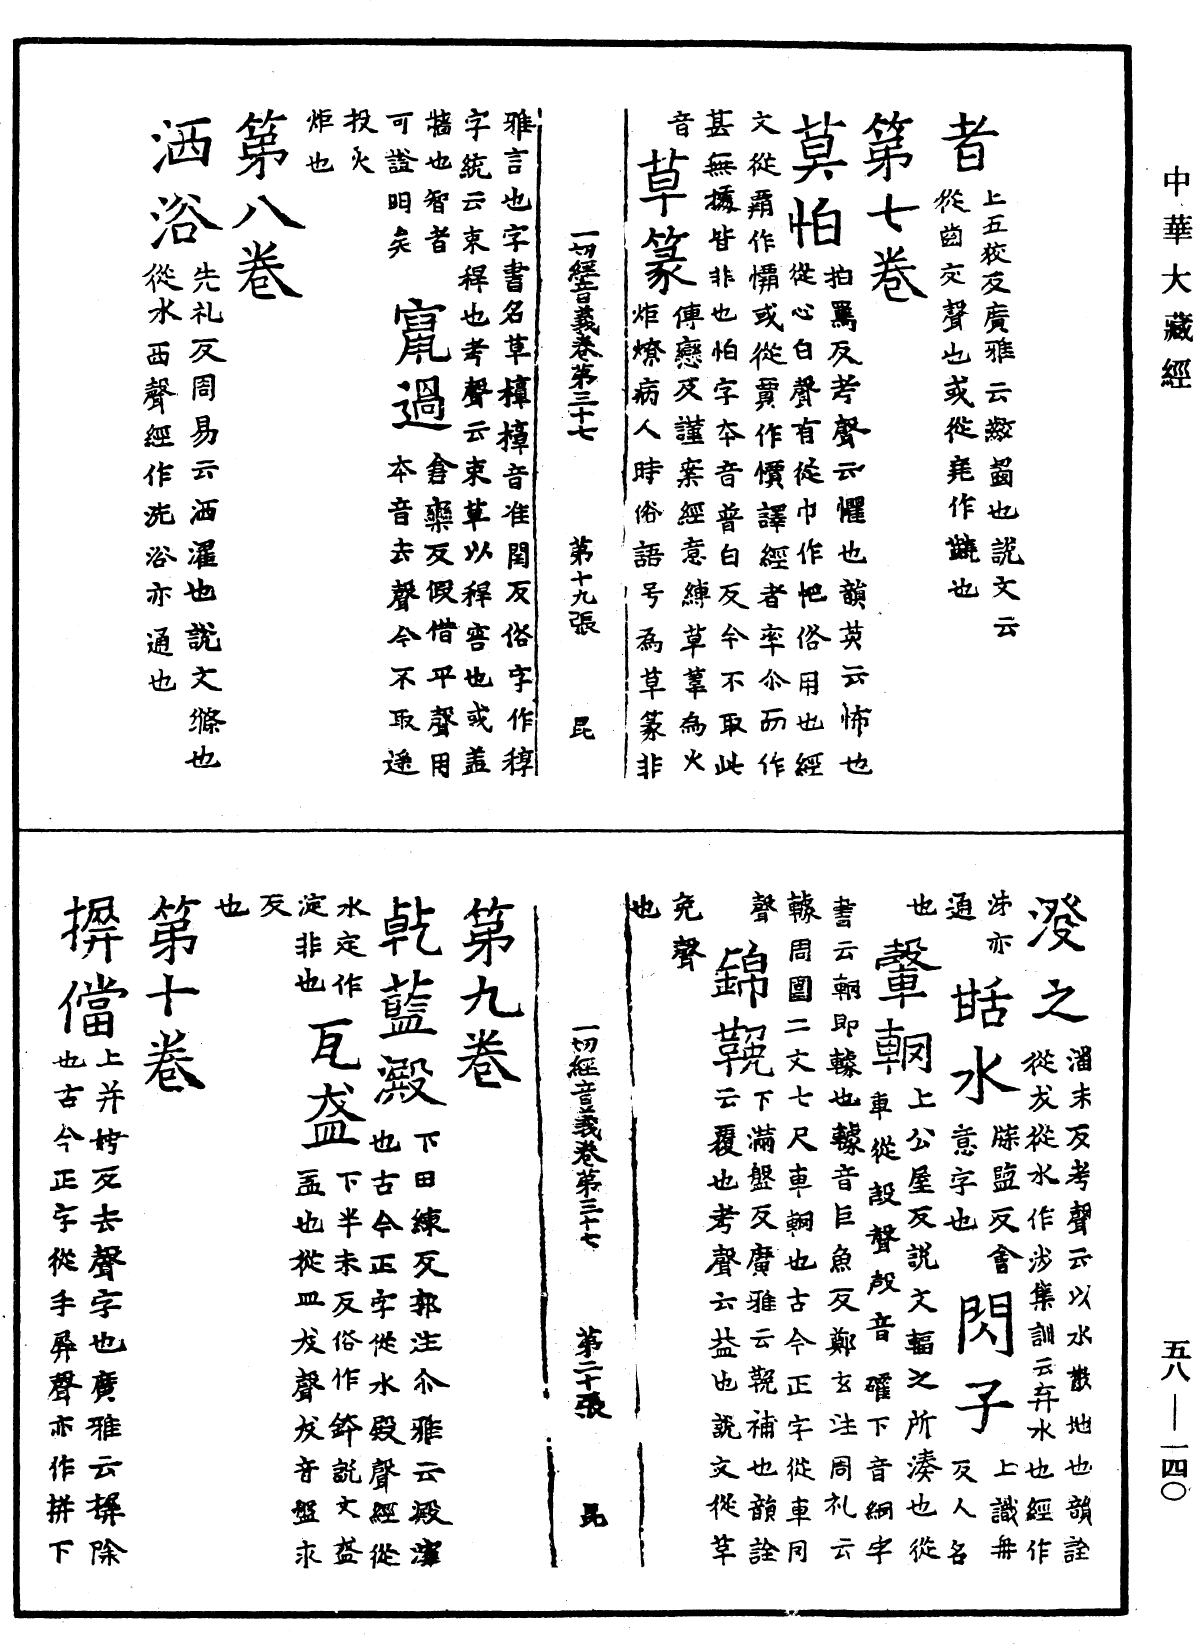 中華大藏經
者
上五校反廣雅云齩齧也說文云
從齒交聲也或從堯作𪘎也
第七卷
莫怕
拍罵反考聲云懼也韻英云怖也
從心白聲有從巾作帊俗用也經
文從霸作㶚或從賈作價譯經者率尒而作
甚無據皆非也怕字本音普白反今不取此
音
草篆
傳戀反謹案經意縛草葦為火
炬燎病人時俗語号為草篆非
一切經音義卷第三十七 第十九張 昆
雅言也字書名草㯻音准閏反俗字作稕
字統云束稈也考聲云束草以稈窖也或蓋
牆也智者
可證明矣
𥨥過
倉欒反假借平聲用
本音去聲今不取遙
投火
炬也
第八卷
洒浴
先礼反周易云洒濯也說文滌也
從水西聲經作洗浴亦通也
潑之
潘末反考聲云以水散地也韻詮
從犮從水作涉集訓云弃水也經作
沛亦
通
甛水
牒監反會
意字也
閃子
上識冉
反人名
也
轂輞
上公屋反說文輻之所湊也從
車從㱿聲㱿音確下音網字
書云輞即轅也轅音巨魚反鄭玄注周礼云
轅周圍二丈七尺車輞也古今正字從車罔
聲
錦鞔
下滿盤反廣雅云鞔補也韻詮
云覆也考聲云益也說文從革
免聲
也
一切經音義卷第三十七 第二十張 昆
第九卷
乾藍澱
下田練反郭注尒雅云澱滓
也古今正字從水殿聲經從
水定作
淀非也
瓦盋
下半末反俗作鉢說文盋
盂也從皿犮聲犮音盤末
反
也
第十卷
摒儅
上并娉反去聲字也廣雅云摒除
也古今正字從手屏聲亦作拼下
五八—一四〇